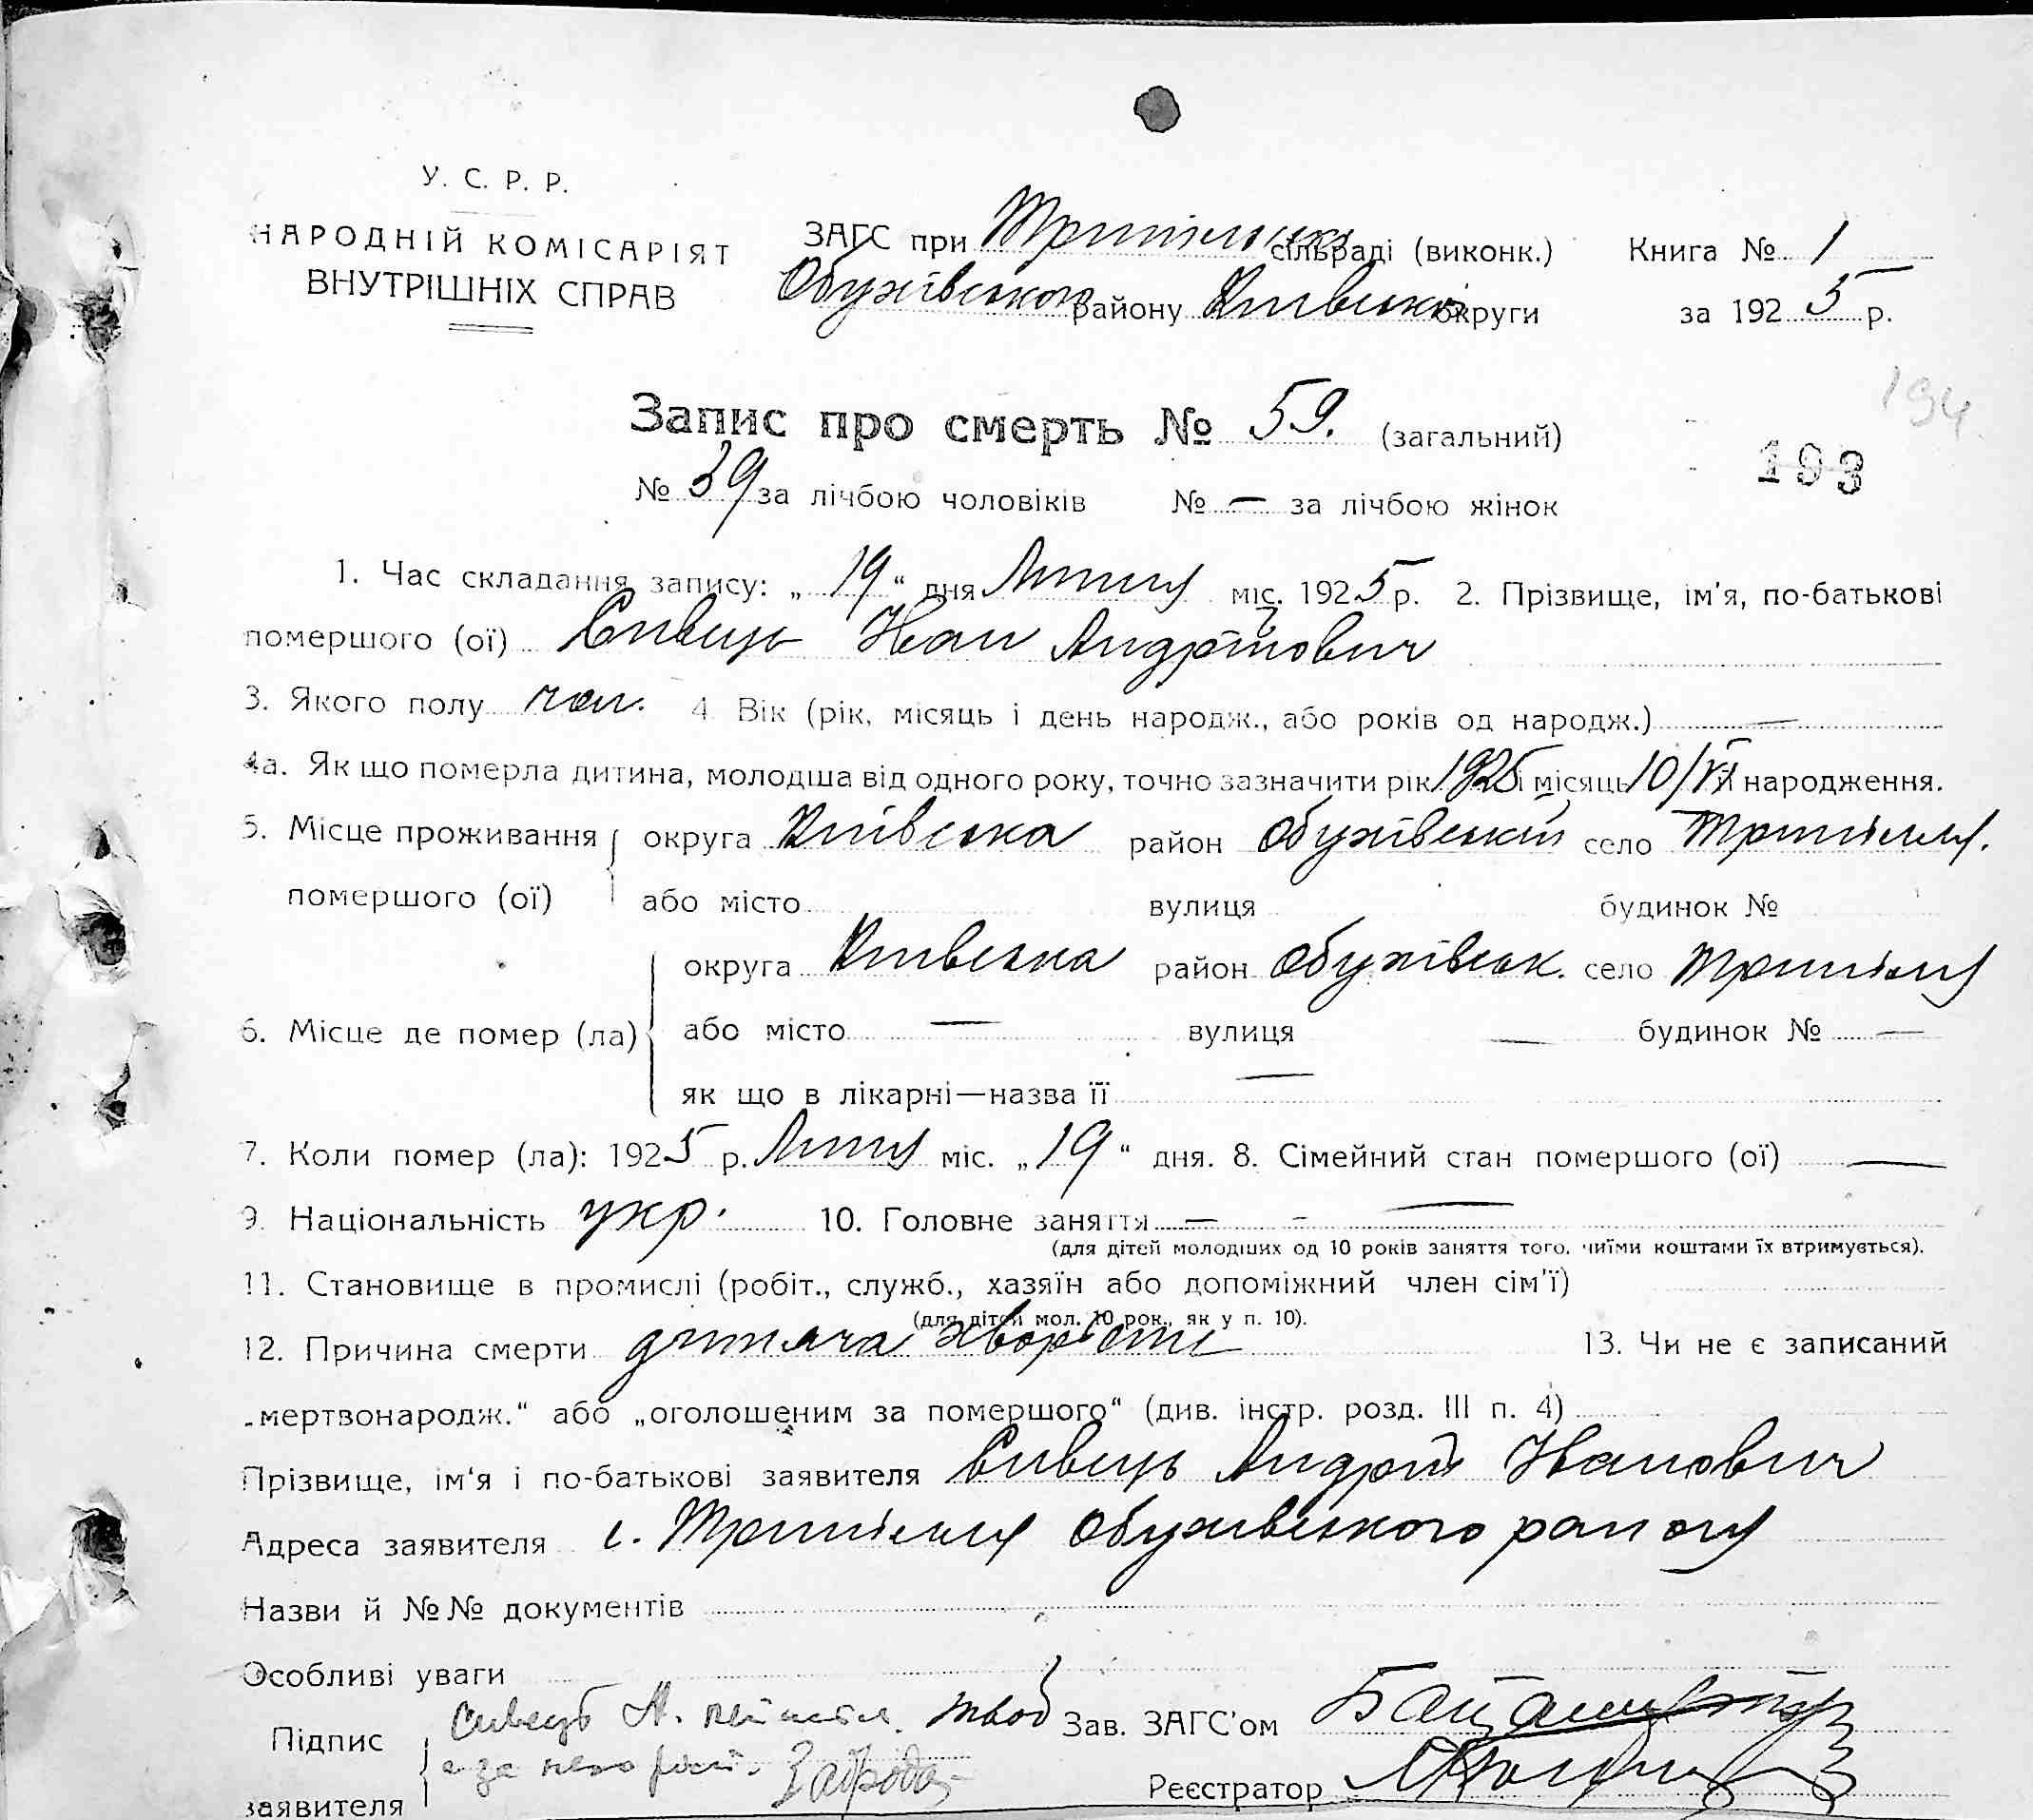 У. С. Р. Р.
НАРОДНІЙ КОМІСАРІЯТ
ВНУТРІШНІХ СПРАВ
ЗАГС при Трипільскій сільраді (виконк.) Книга № 1
Обухівського району Київської округи за 1925 р.
194
Запис про смерть № 59. (загальний)
193
№ 39 за лічбою чоловіків № — за лічбою жінок
1. Час складання запису: „19“ дня Липня міс. 1925 р. 2. Прізвище, ім'я, по-батькові
помершого (ої) Сивець Іван Андрійович
3. Якого полу чол. 4. Вік (рік, місяць і день народж., або років од народж.) —
4а. Як що померла дитина, молодша від одного року, точно зазначити рік 1925 і місяць 10/VI народження.
5. Місце проживання округа Київська район Обухівський село Трипілля.
помершого (ої) або місто вулиця будинок №
округа Київська район Обухівськ. село Трипілля
6. Місце де помер (ла) або місто — вулиця — будинок № —
як що в лікарні—назва її —
7. Коли помер (ла): 1925 р. Липня міс. „19“ дня. 8. Сімейний стан помершого (ої) —
9. Національність укр. 10. Головне заняття — - —
(для дітей молодших од 10 років заняття того, чиїми коштами їх втримується).
11. Становище в промислі (робіт., служб., хазяїн або допоміжний член сім'ї)
(для дітей мол. 10 рок., як у п. 10).
12. Причина смерти дитяча хворість 13. Чи не є записаний
„мертвонародж.“ або „оголошеним за помершого“ (див. інстр. розд. III п. 4)
Прізвище, ім'я і по-батькові заявителя Сивець Андрій Іванович
Адреса заявителя с. Трипілля Обухівського району
Назви й №№ документів
Особливі уваги
Підпис Сивець А. Зав. ЗАГС'ом
а за него
заявителя Реєстратор